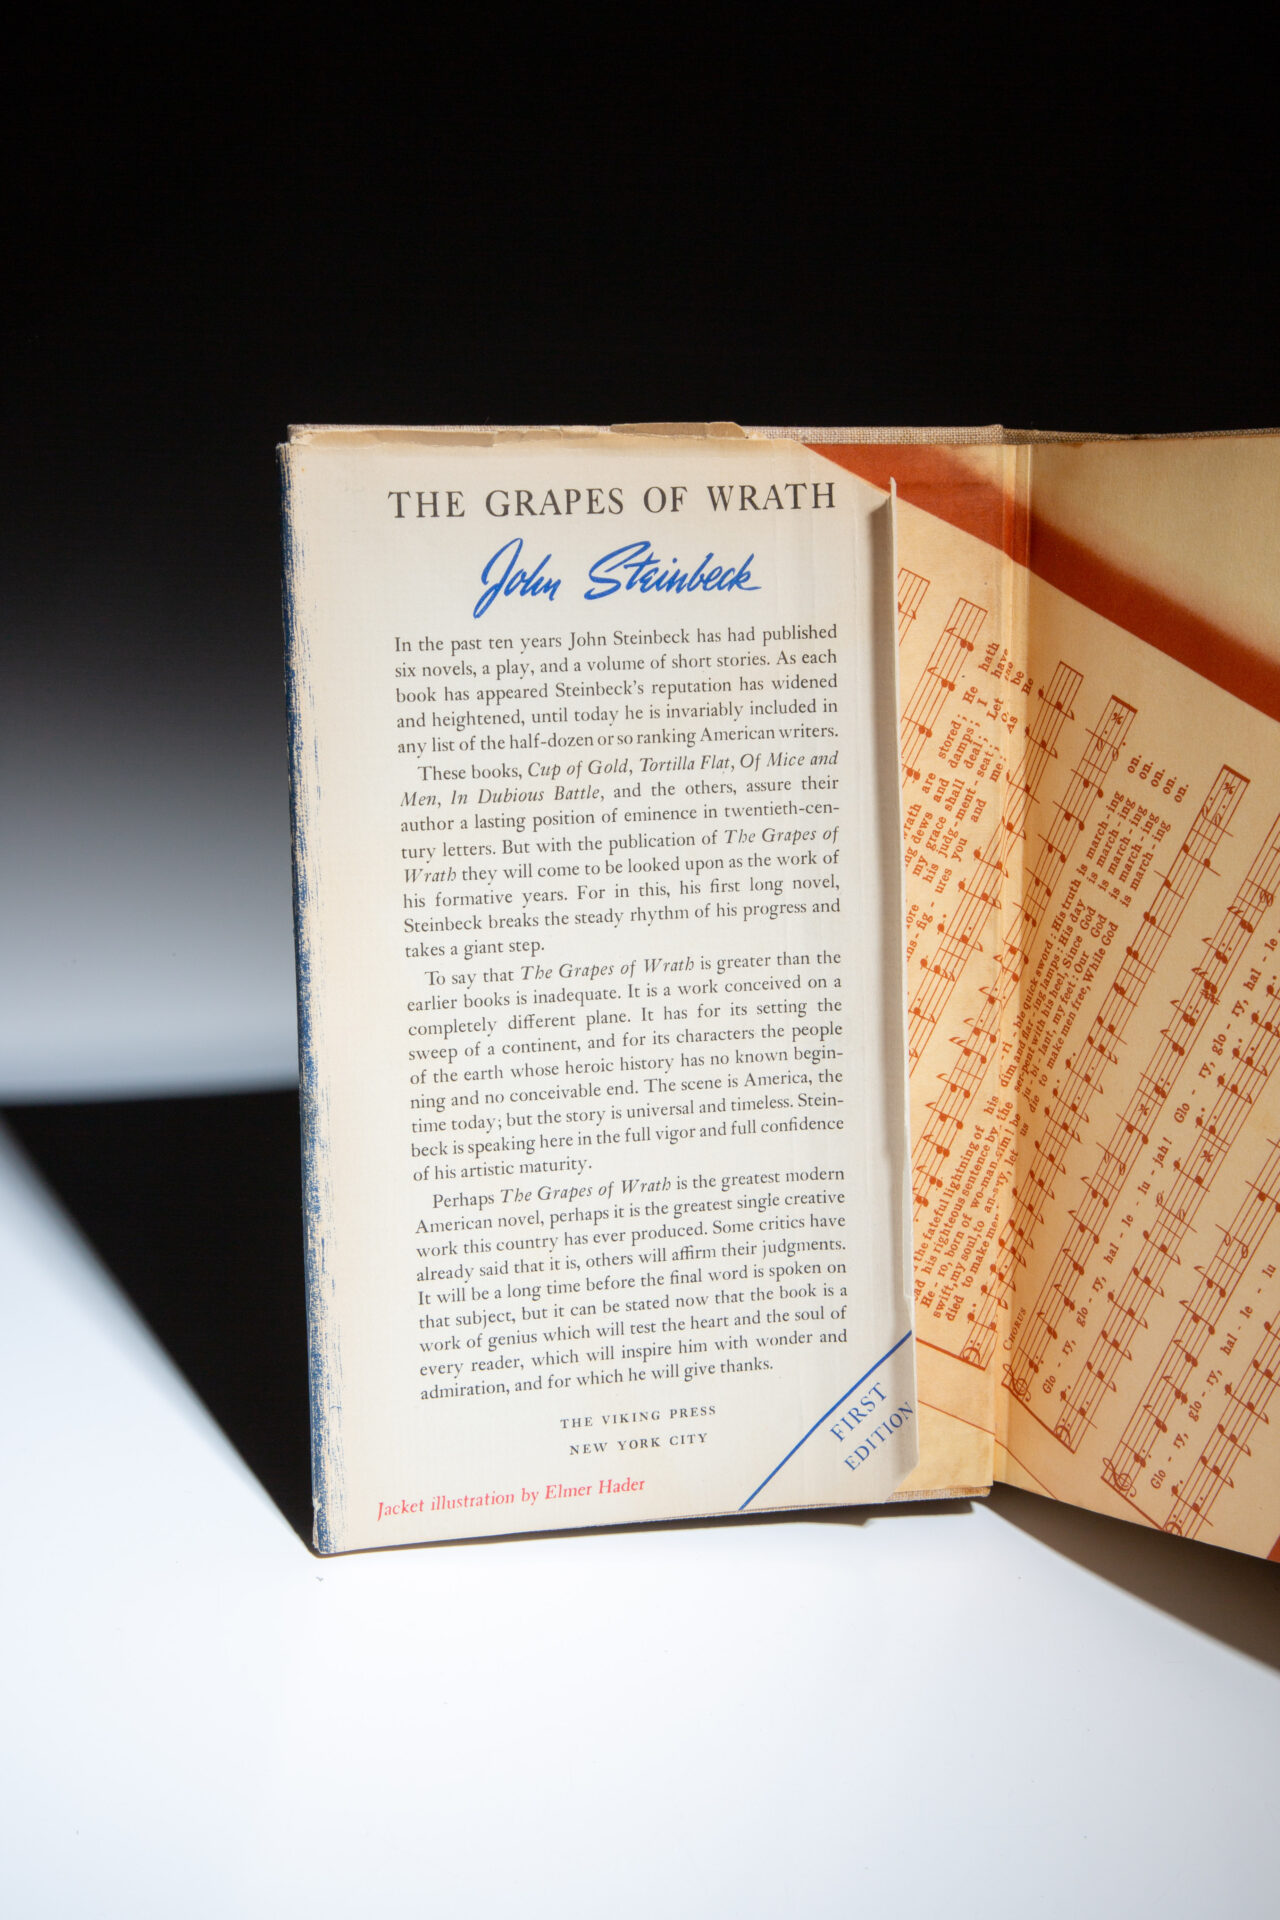 THE GRAPES OF WRATH
John Steinbeck
In the past ten years John Steinbeck has had published
six novels, a play, and a volume of short stories. As each
book has appeared Steinbeck's reputation has widened
and heightened, until today he is invariably included in
any list of the half-dozen or so ranking American writers.
These books, Cup of Gold, Tortilla Flat, Of Mice and
Men, In Dubious Battle, and the others, assure their
author a lasting position of eminence in twentieth-cen-
tury letters. But with the publication of The Grapes of
Wrath they will come to be looked upon as the work of
his formative years. For in this, his first long novel,
Steinbeck breaks the steady rhythm of his progress and
takes a giant step.
To say that The Grapes of Wrath is greater than the
earlier books is inadequate. It is a work conceived on a
completely different plane. It has for its setting the
sweep of a continent, and for its characters the people
of the earth whose heroic history has no known begin-
ning and no conceivable end. The scene is America, the
time today; but the story is universal and timeless. Stein-
beck is speaking here in the full vigor and full confidence
of his artistic maturity.
Perhaps The Grapes of Wrath is the greatest modern
American novel, perhaps it is the greatest single creative
work this country has ever produced. Some critics have
already said that it is, others will affirm their judgments.
It will be a long time before the final word is spoken on
that subject, but it can be stated now that the book is a
work of genius which will test the heart and the soul of
every reader, which will inspire him with wonder and
admiration, and for which he will give thanks.
THE VIKING PRESS
NEW YORK CITY
Jacket illustration by Elmer Hader
FIRST
EDITION
wrath are stored; He hath
dews and damps; I have
my grace shall deal; Let
his judg-ment-seat;
ures you and me; As He
the fateful lightning of his ri-ble quick sword: His truth is march-ing on.
his righteous sentence by the dim and flar-ing lamps: His day is march-ing on.
He-ro, born of wo-man, the serpent with his heel, Since God is march-ing on.
swift, my soul, to an-swer be ju-bi-lant, my feet: Our God is march-ing on.
died to make men let us die to make men free, While God is march-ing on.
CHORUS
Glo - ry, glo - ry, hal - le - lu - jah! Glo - ry, glo - ry, hal - le
Glo - ry, glo - ry, hal - le - lu